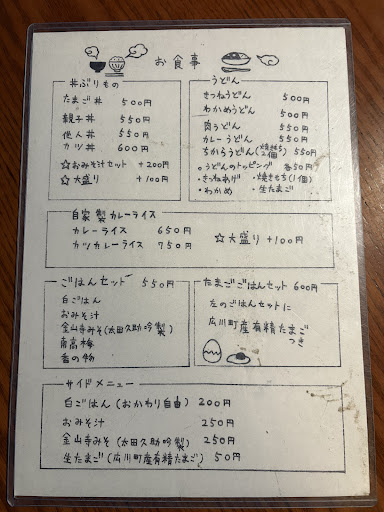 お食事
丼ぶりもの
たまご丼 500円
親子丼 550円
他人丼 550円
カツ丼 600円
☆おみそ汁セット +200円
☆大盛り +100円
うどん
きつねうどん 500円
わかめうどん 500円
肉うどん 550円
カレーうどん 550円
ちからうどん(焼もち2個) 550円
◦うどんのトッピング 各50円
・きつねあげ ・焼きもち(1個)
・わかめ ・生たまご
自家製カレーライス
カレーライス 650円
カツカレーライス 750円
☆大盛り +100円
ごはんセット 550円
白ごはん
おみそ汁
金山寺みそ(太田久助吟製)
南高梅
香の物
たまごごはんセット 600円
左のごはんセットに
広川町産有精たまご
つき
サイドメニュー
白ごはん(おかわり自由) 200円
おみそ汁 250円
金山寺みそ(太田久助吟製) 250円
生たまご(広川町産有精たまご) 50円